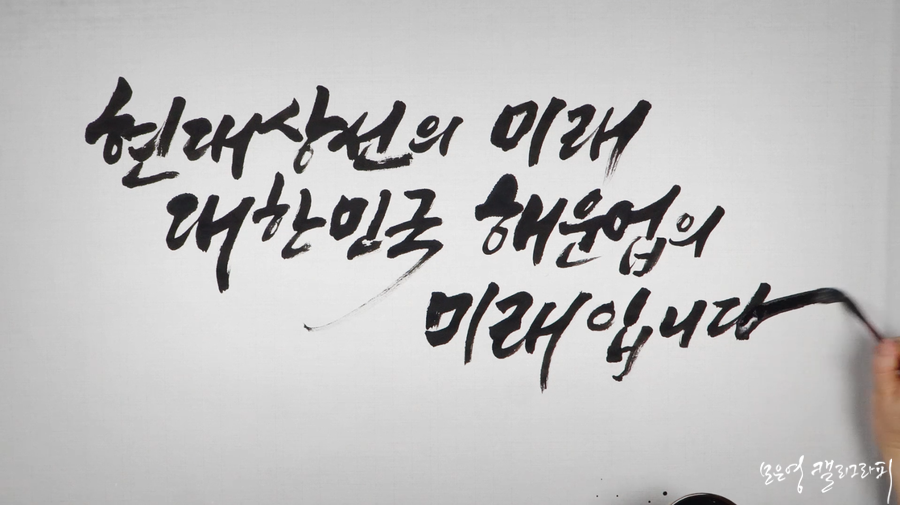 현대상선의 미래
대한민국 해운업의
미래입니다
모은영 캘리그라피